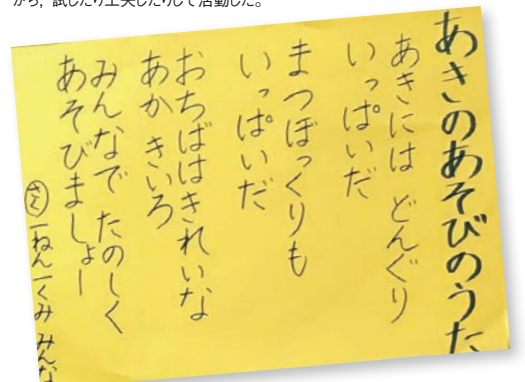 から，試したり工夫したりして活動した。
あきのあそびのうた
あきには どんぐり
いっぱいだ
まつぼっくりも
いっぱいだ
おちばはきれいな
あか きいろ
みんなで たのしく
あそびましょー
さく 一ねん一くみ みんな